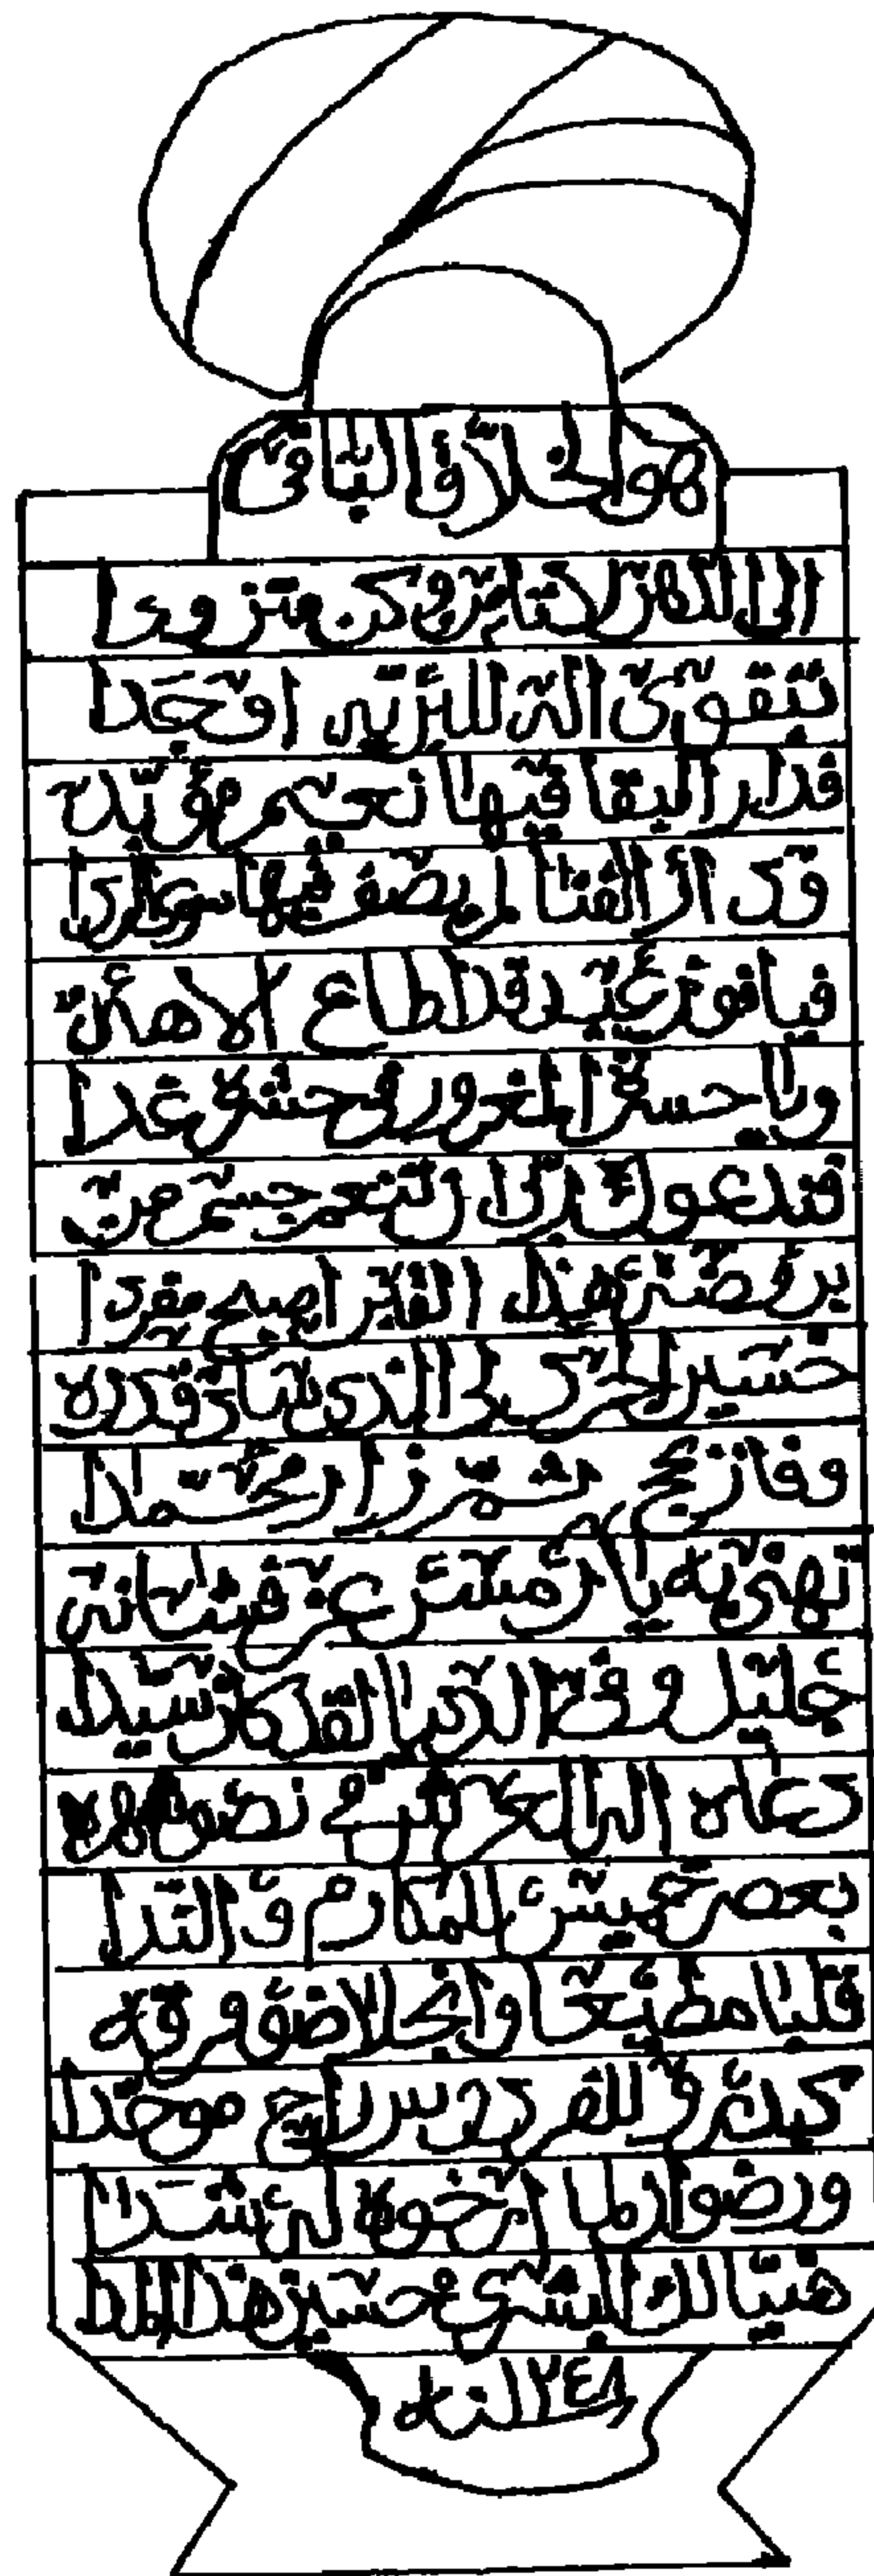 هو الخلاق الباقي
الى الله وكن متزودا
بتقوى اله للبرية اوجدا
فدار البقا فيها نعيم مؤبد
ودار الفنا لم يصف فيها سوى الردا
فيا فوز عبد قد اطاع الاهه
ويا حسرة المغرور في حشره غدا
تنعم جسم من
بروضة هذا القبر اصبح مفردا
حسين الذي ساد قدره
وفاز بحج ثم زار محمدا
عز فشانه
جليل وفي الدنيا لقد كان سيدا
دعاه اله العرش في
بعصر خميس للمكارم والندا
فلبا مطيعا وانجلا ضوء فرقه
كبدر وللفردوس راح موحدا
ورضوان لما ارخوه له شدا
هنيا لك البشرى حسين هنا المدا
سنة ١٢٤٨